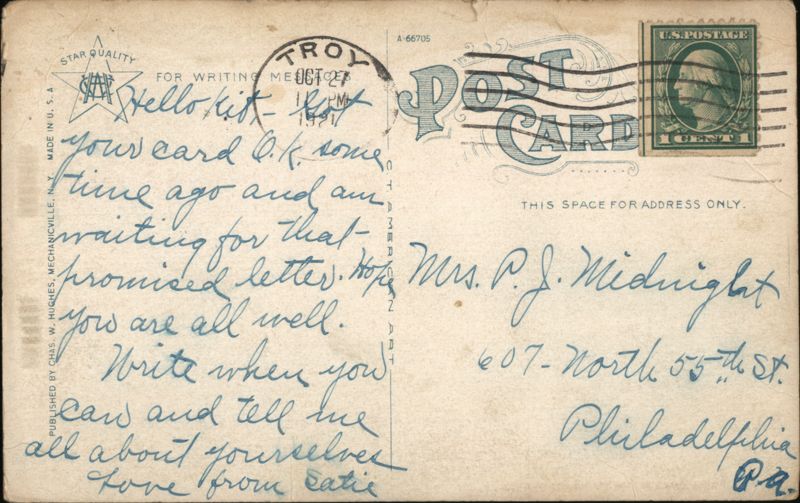 STAR QUALITY
FOR WRITING MESSAGES
TROY
OCT 27
PM
A-66705
POST
CARD
U.S. POSTAGE
1 CENT 1
THIS SPACE FOR ADDRESS ONLY.
Hello Kit - Got
your card O.K. some
time ago and am
waiting for that
promised letter. Hope
you are all well.
Write when you
can and tell me
all about yourselves
Love from Satie
Mrs. P. J. Midnight
607 - North 55th St.
Philadelphia
Pa.
PUBLISHED BY CHAS. W. HUGHES, MECHANICVILLE, N.Y. MADE IN U.S.A.
C.T. AMERICAN ART